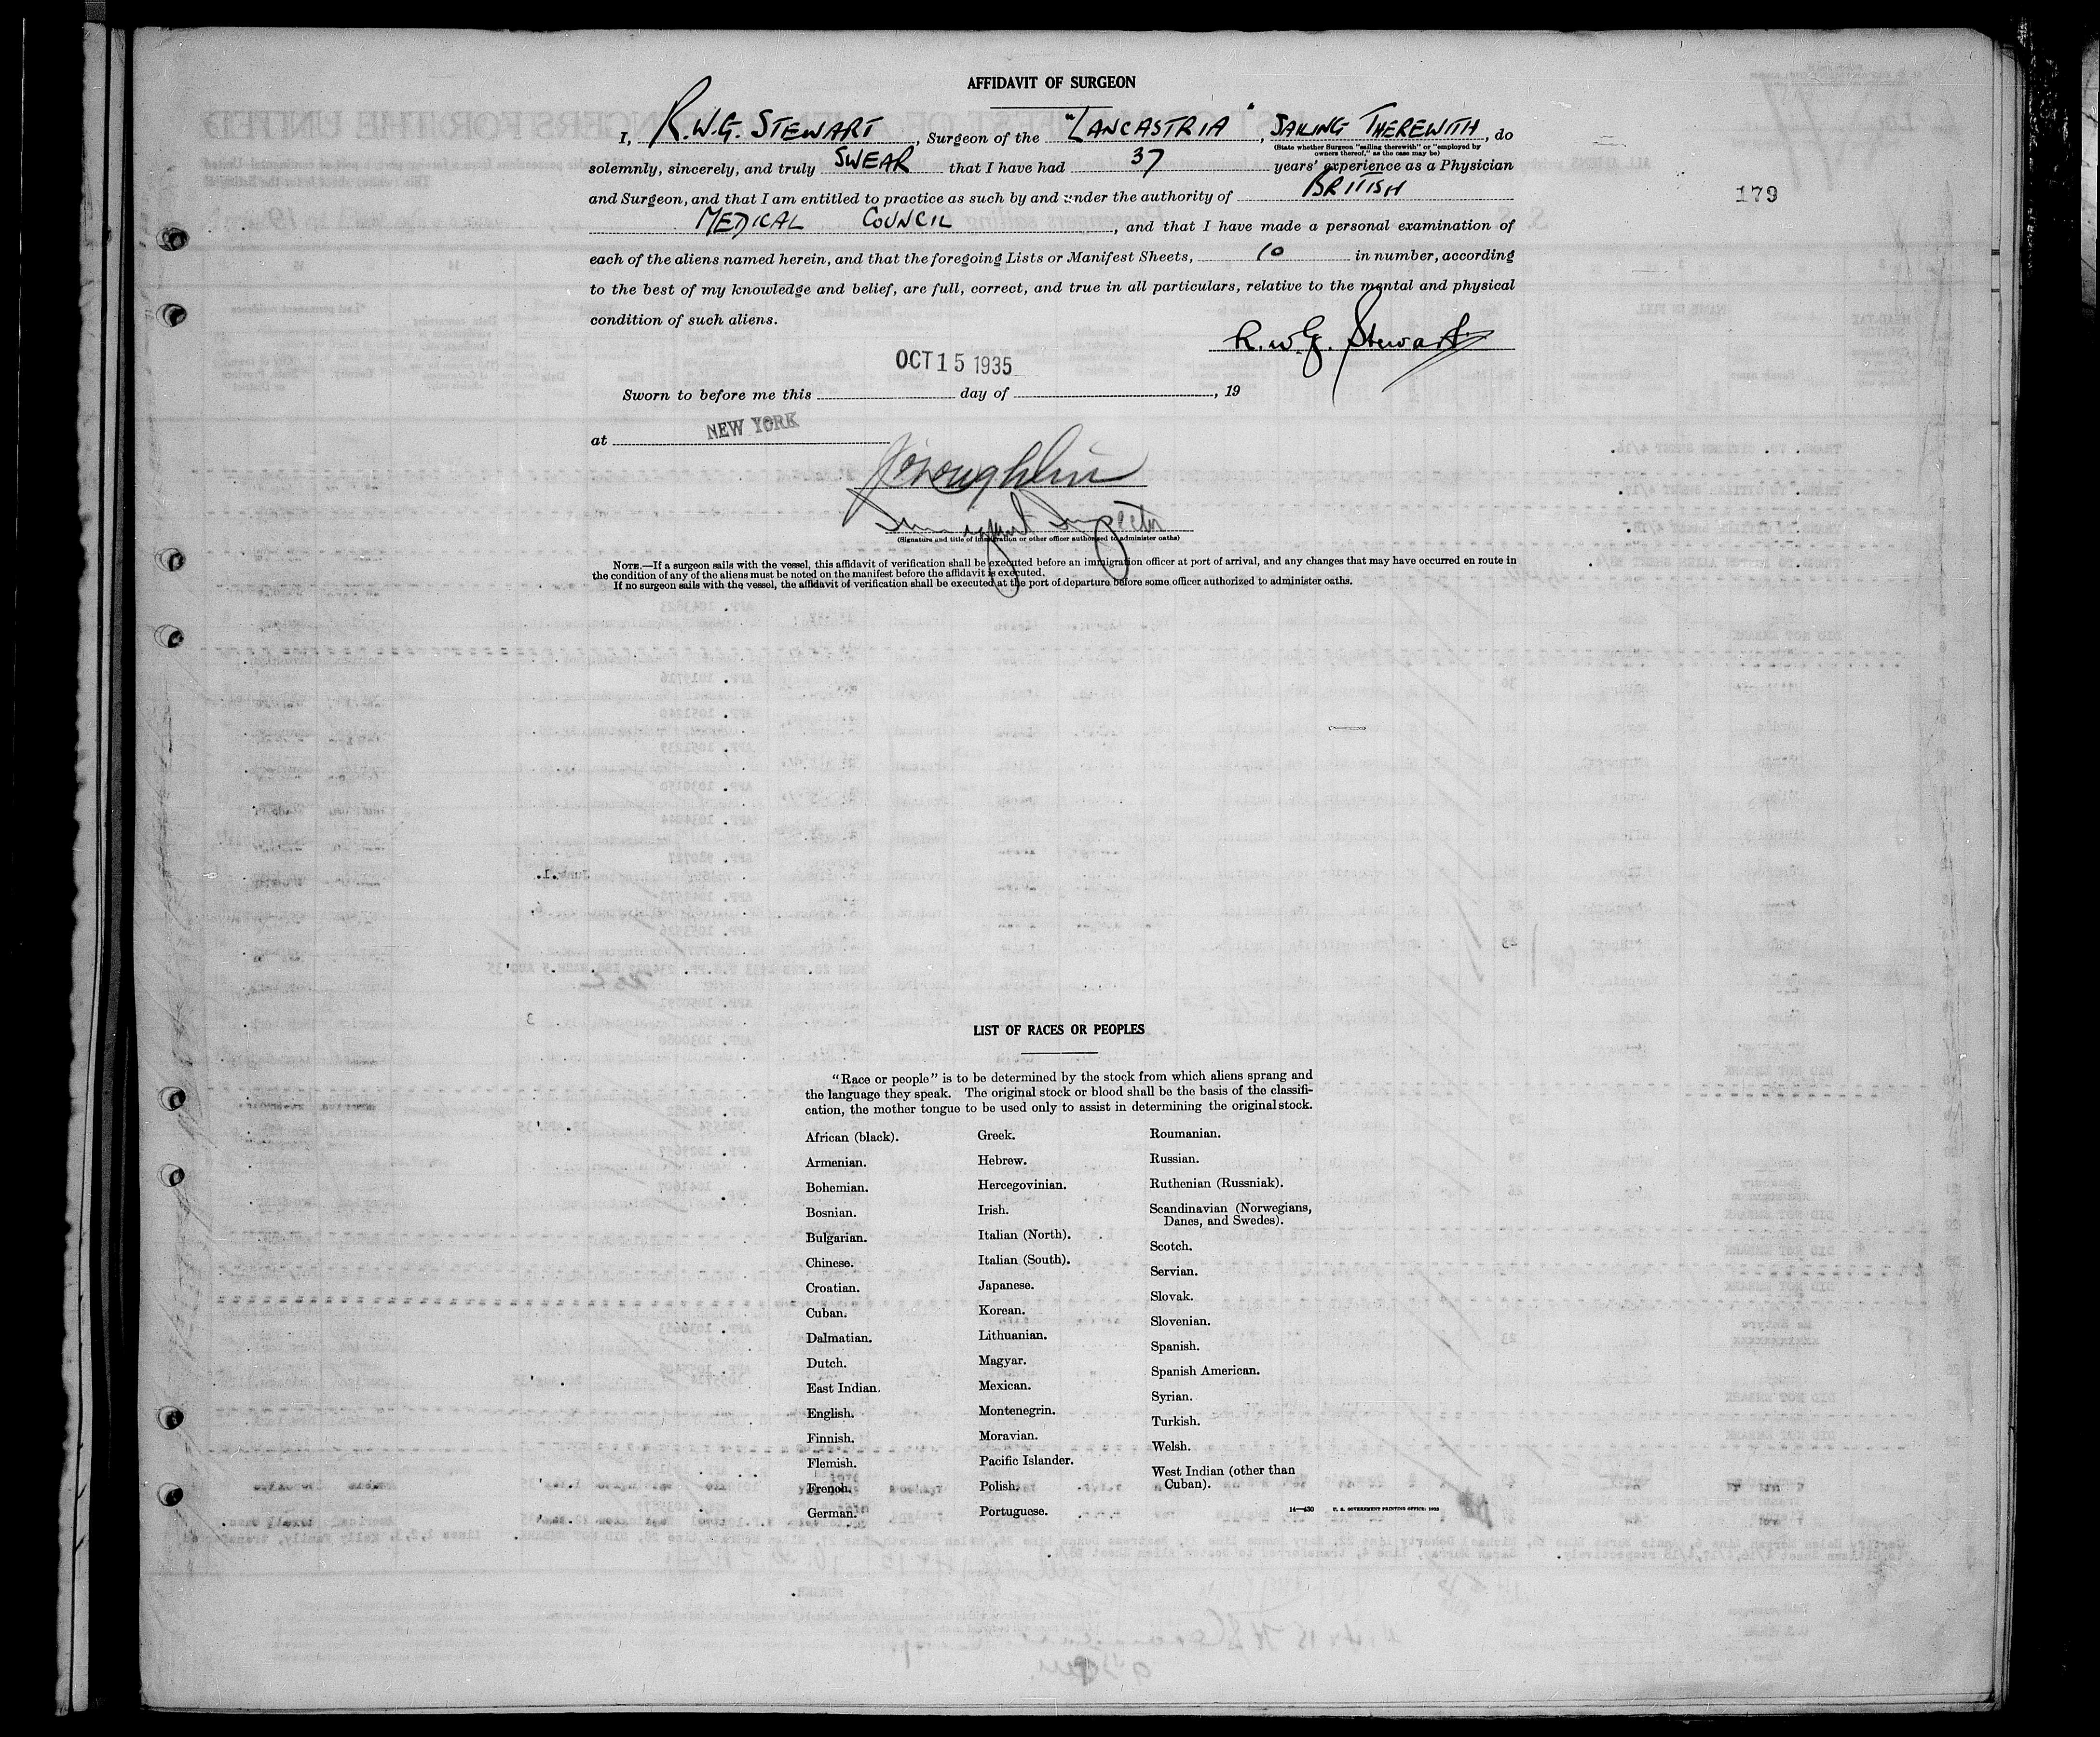 AFFIDAVIT OF SURGEON
I, R.W.G. STEWART, Surgeon of the "LANCASTRIA", SAILING THEREWITH, do
(State whether Surgeon "sailing therewith" or "employed by
owners thereof," as the case may be)
solemnly, sincerely, and truly SWEAR that I have had 37 years' experience as a Physician
and Surgeon, and that I am entitled to practice as such by and under the authority of BRITISH
MEDICAL COUNCIL, and that I have made a personal examination of
179
each of the aliens named herein, and that the foregoing Lists or Manifest Sheets, 10 in number, according
to the best of my knowledge and belief, are full, correct, and true in all particulars, relative to the mental and physical
condition of such aliens.
R.W.G. Stewart
OCT 15 1935
Sworn to before me this day of , 19
at NEW YORK
Immigrant Inspector
(Signature and title of immigration or other officer authorized to administer oaths)
NOTE.—If a surgeon sails with the vessel, this affidavit of verification shall be executed before an immigration officer at port of arrival, and any changes that may have occurred en route in
the condition of any of the aliens must be noted on the manifest before the affidavit is executed.
If no surgeon sails with the vessel, the affidavit of verification shall be executed at the port of departure before some officer authorized to administer oaths.
LIST OF RACES OR PEOPLES
"Race or people" is to be determined by the stock from which aliens sprang and
the language they speak. The original stock or blood shall be the basis of the classifi-
cation, the mother tongue to be used only to assist in determining the original stock.
African (black).
Armenian.
Bohemian.
Bosnian.
Bulgarian.
Chinese.
Croatian.
Cuban.
Dalmatian.
Dutch.
East Indian.
English.
Finnish.
Flemish.
French.
German.
Greek.
Hebrew.
Hercegovinian.
Irish.
Italian (North).
Italian (South).
Japanese.
Korean.
Lithuanian.
Magyar.
Mexican.
Montenegrin.
Moravian.
Pacific Islander.
Polish.
Portuguese.
Roumanian.
Russian.
Ruthenian (Russniak).
Scandinavian (Norwegians,
Danes, and Swedes).
Scotch.
Servian.
Slovak.
Slovenian.
Spanish.
Spanish American.
Syrian.
Turkish.
Welsh.
West Indian (other than
Cuban).
14—430 U. S. GOVERNMENT PRINTING OFFICE: 1932